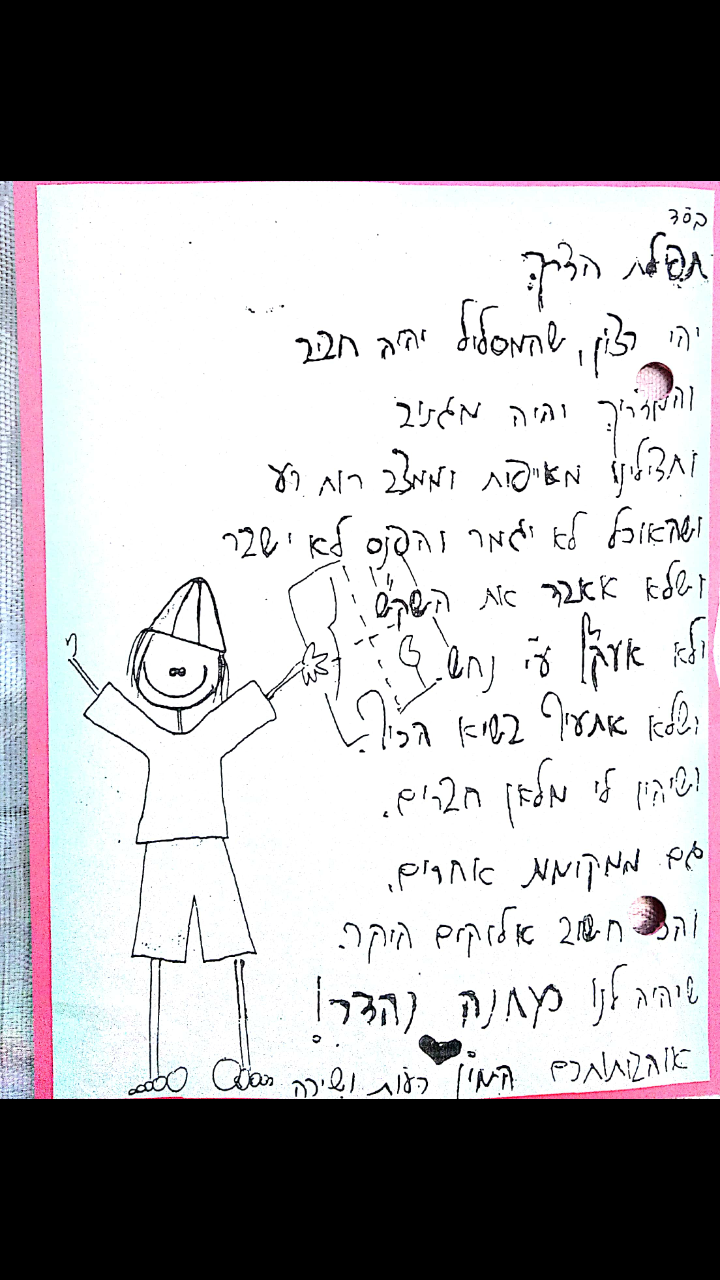 בס"ד
תפילת הדרך:
יהי רצון, שהמסלול יהיה חביב
והמדריך יהיה מגניב
ותצילינו מעייפות וממצב רוח רע
ושהאוכל לא יגמר והפנס לא ישבר
ושלא אאבד את השק"ש
ולא אעקץ ע"י נחש.
ושלא אתעלף בשיא הכיף.
ושיהיו לי מלאן חברים.
גם ממקומות אחרים.
חשוב אלוקים היקר.
שיהיה לנו מחנה נהדר!
אוהבותתכם המון רעות ושירה